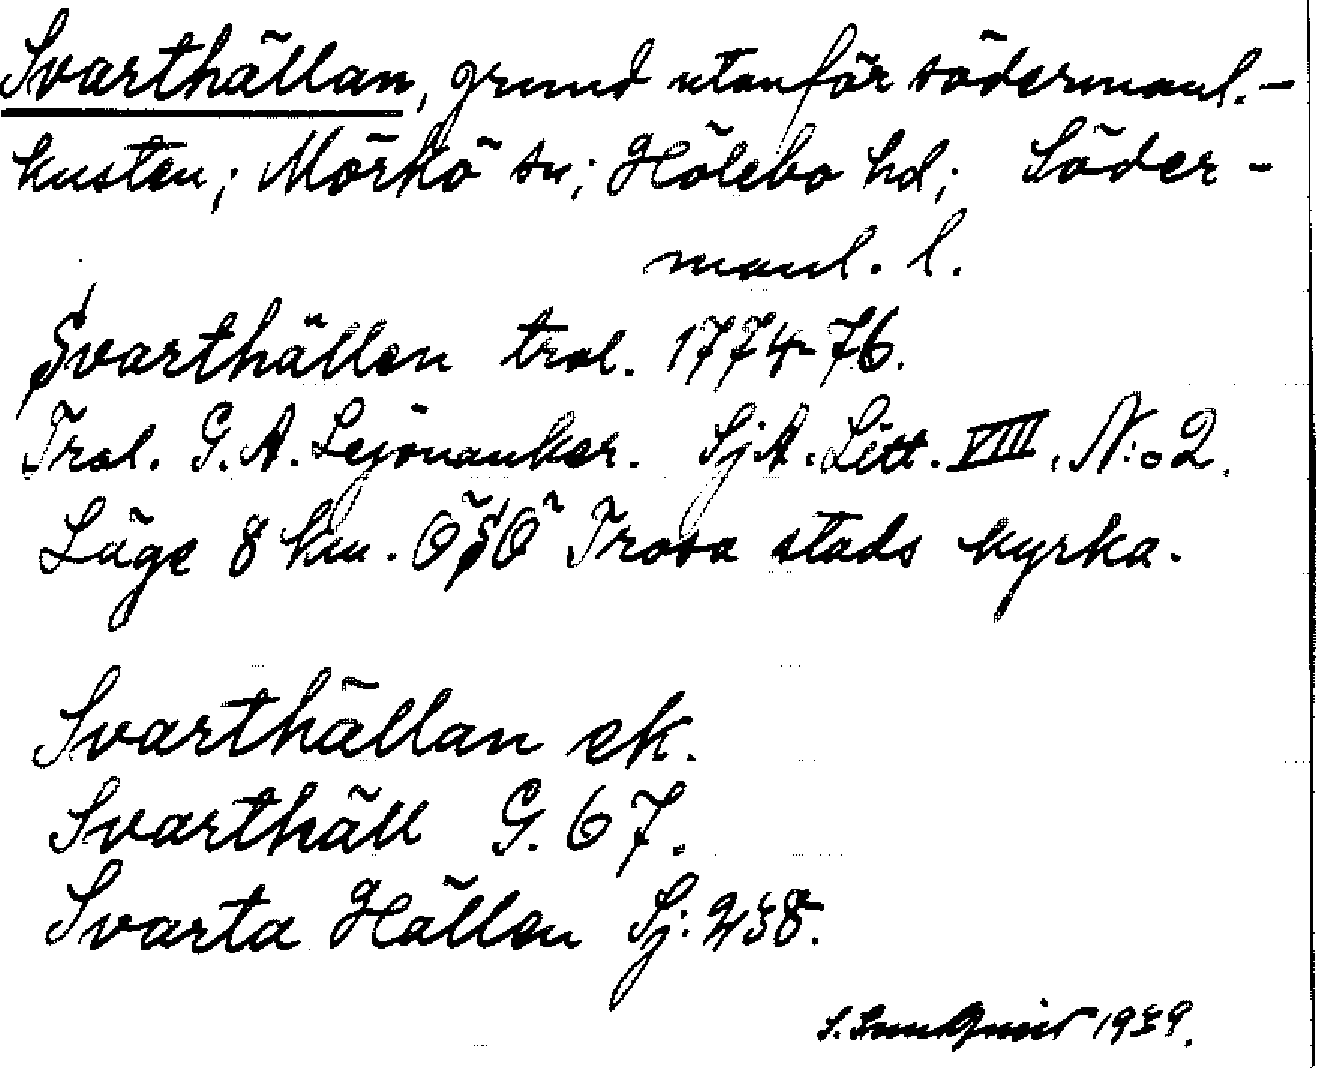 Svarthällan, grund utanför södermanl.-
kusten; Mörkö sn; Hölebo hd; Söder-
manl. l.
Svarthällen trol. 1774-76.
Trol. G. A. Lejonanker. SjA. Litt. VIII. N:o 2.
Läge 8 km. ÖSÖ Trosa stads kyrka.
Svarthällan ek.
Svarthäll G. 67.
Svarta Hällen Sj: 238.
1939.